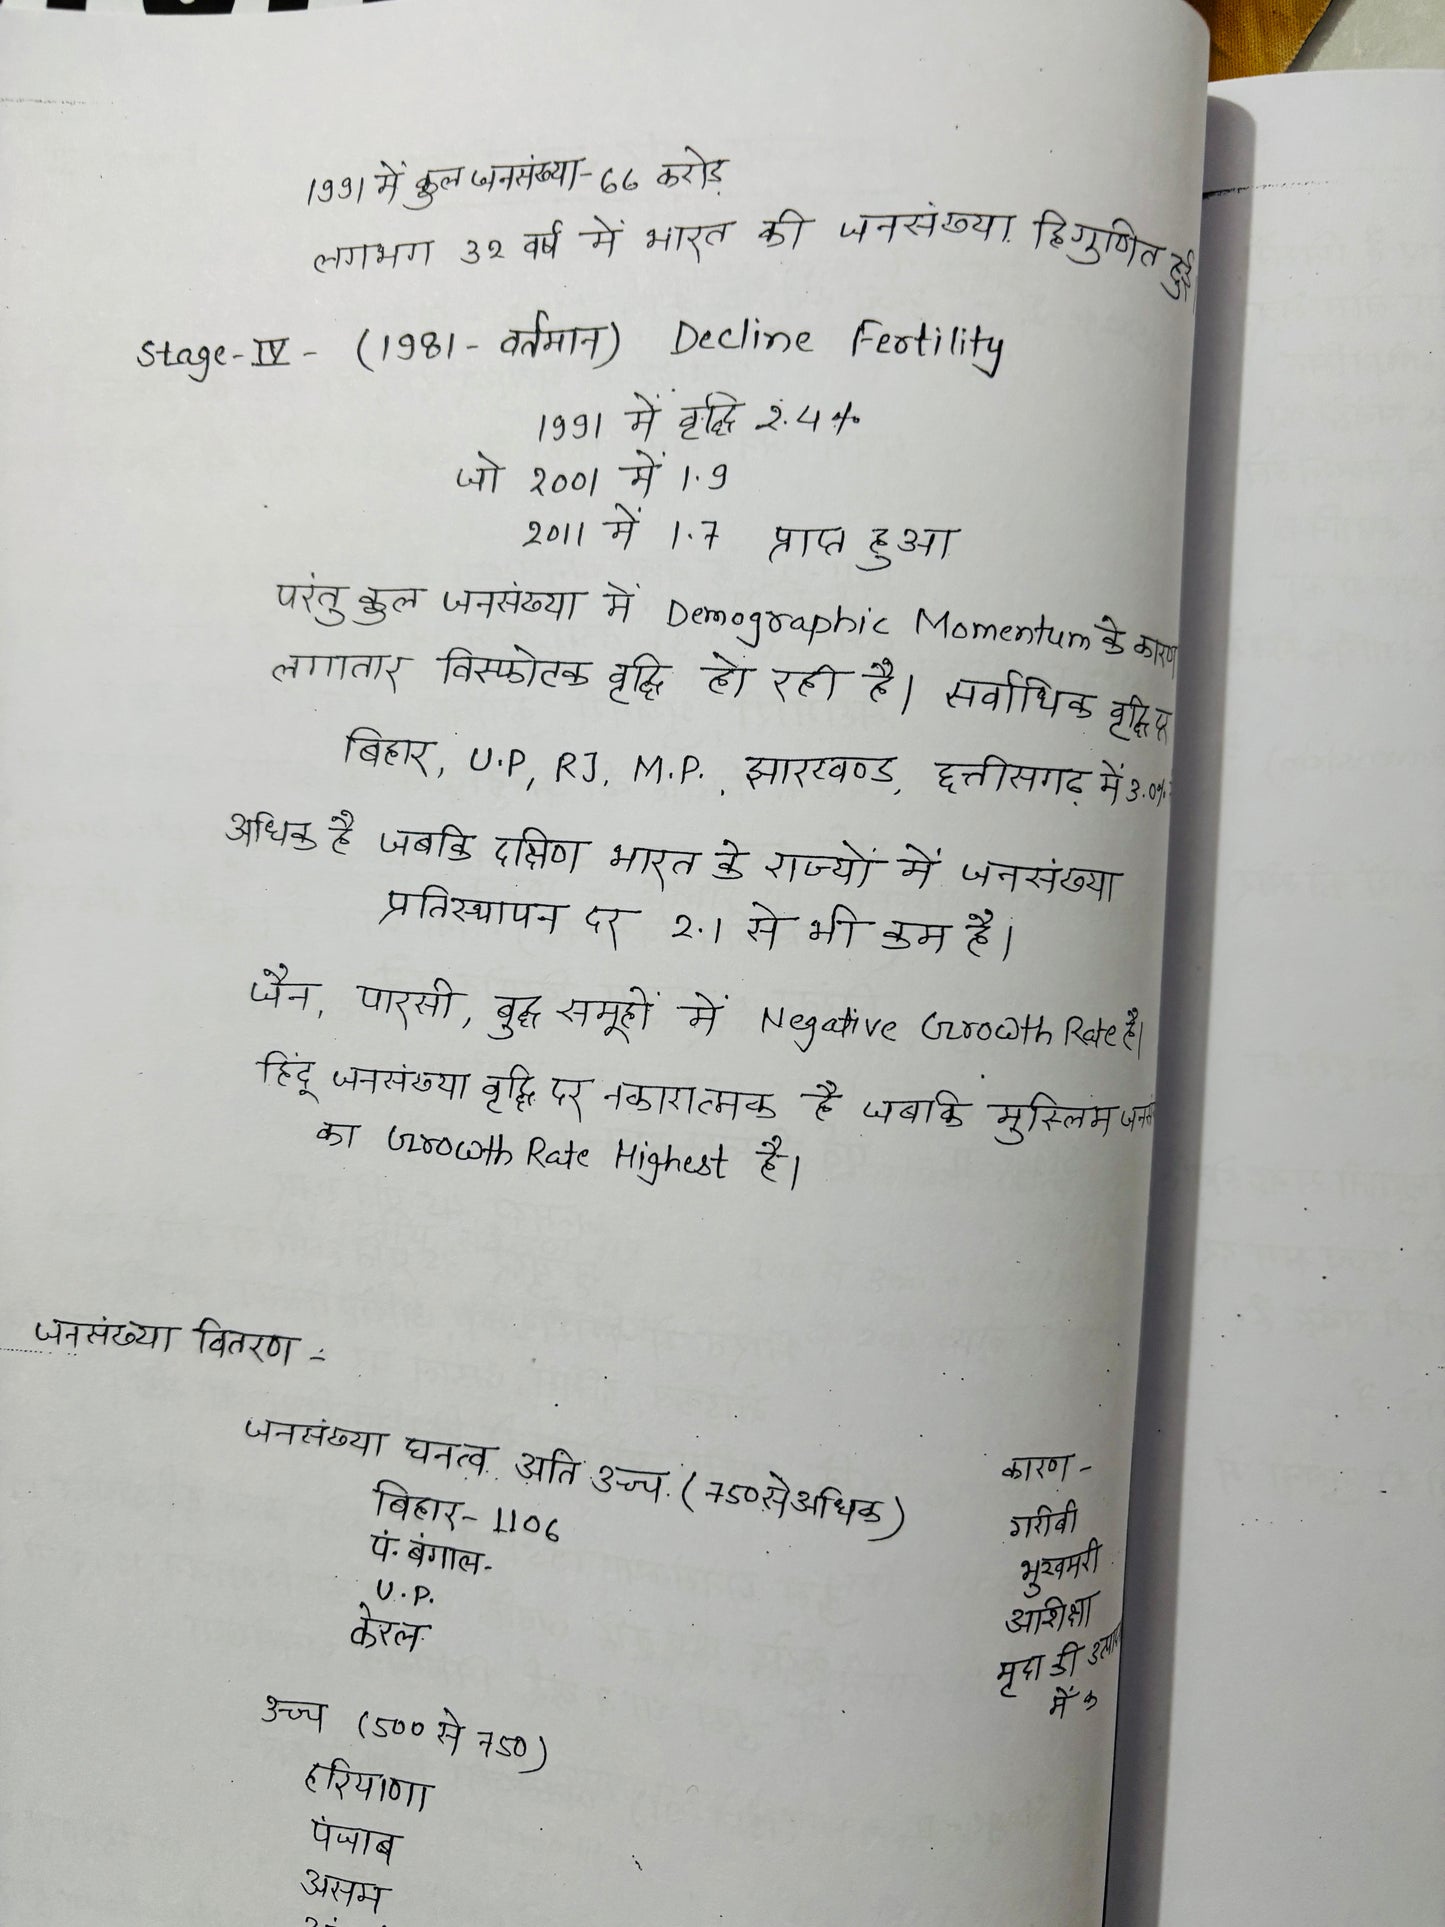 1991 में कुल जनसंख्या - 66 करोड़
लगभग 32 वर्ष में भारत की जनसंख्या द्विगुणित हुई
Stage-IV - (1981 - वर्तमान) Decline Fertility
1991 में वृद्धि 2.4%
जो 2001 में 1.9
2011 में 1.7 प्राप्त हुआ
परंतु कुल जनसंख्या में Demographic Momentum के कारण
लगातार विस्फोटक वृद्धि हो रही है। सर्वाधिक वृद्धि
बिहार, U.P, RJ, M.P., झारखण्ड, छत्तीसगढ़ में 3.0%
अधिक है जबकि दक्षिण भारत के राज्यों में जनसंख्या
प्रतिस्थापन दर 2.1 से भी कम है।
जैन, पारसी, बुद्ध समूहों में Negative Growth Rate है।
हिंदू जनसंख्या वृद्धि दर नकारात्मक है जबकि मुस्लिम
का Growth Rate Highest है।
जनसंख्या वितरण -
जनसंख्या घनत्व अति उच्च (750 से अधिक)
बिहार - 1106
पं. बंगाल -
U.P.
केरल
कारण -
गरीबी
भुखमरी
अशिक्षा
मृदा की
में
उच्च (500 से 750)
हरियाणा
पंजाब
असम